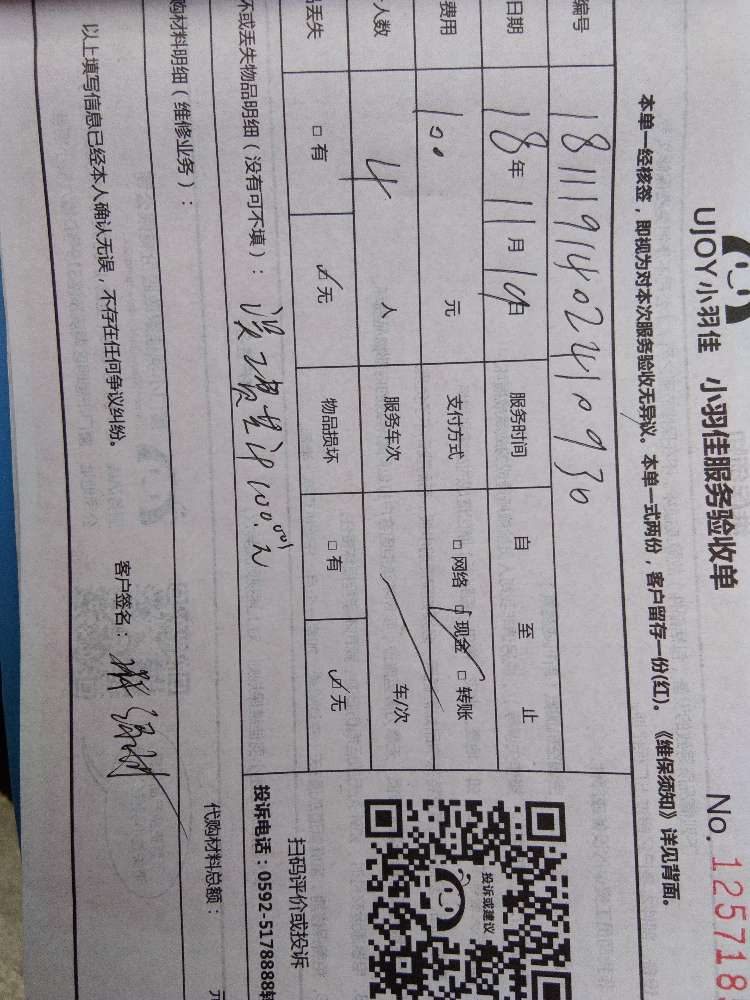 UJOY小羽佳 小羽佳服务验收单 No. 125718
本单一经核签，即视为对本次服务验收无异议。本单一式两份，客户留存一份(红)。《维保须知》详见背面。
编号 1811191402410930
日期 18年11月19日 服务时间 自 至 止
费用 100 元 支付方式 □网络 ☑现金 □转账
人数 4 人 服务车次 车/次
品丢失 □有 ☑无 物品损坏 □有 ☑无
坏或丢失物品明细（没有可不填）：误工费共计100.00元
购材料明细（维修业务）：
代购材料总额： 元
以上填写信息已经本人确认无误，不存在任何争议纠纷。 客户签名：
投诉或建议
扫码评价或投诉
投诉电话：0592-5178888转